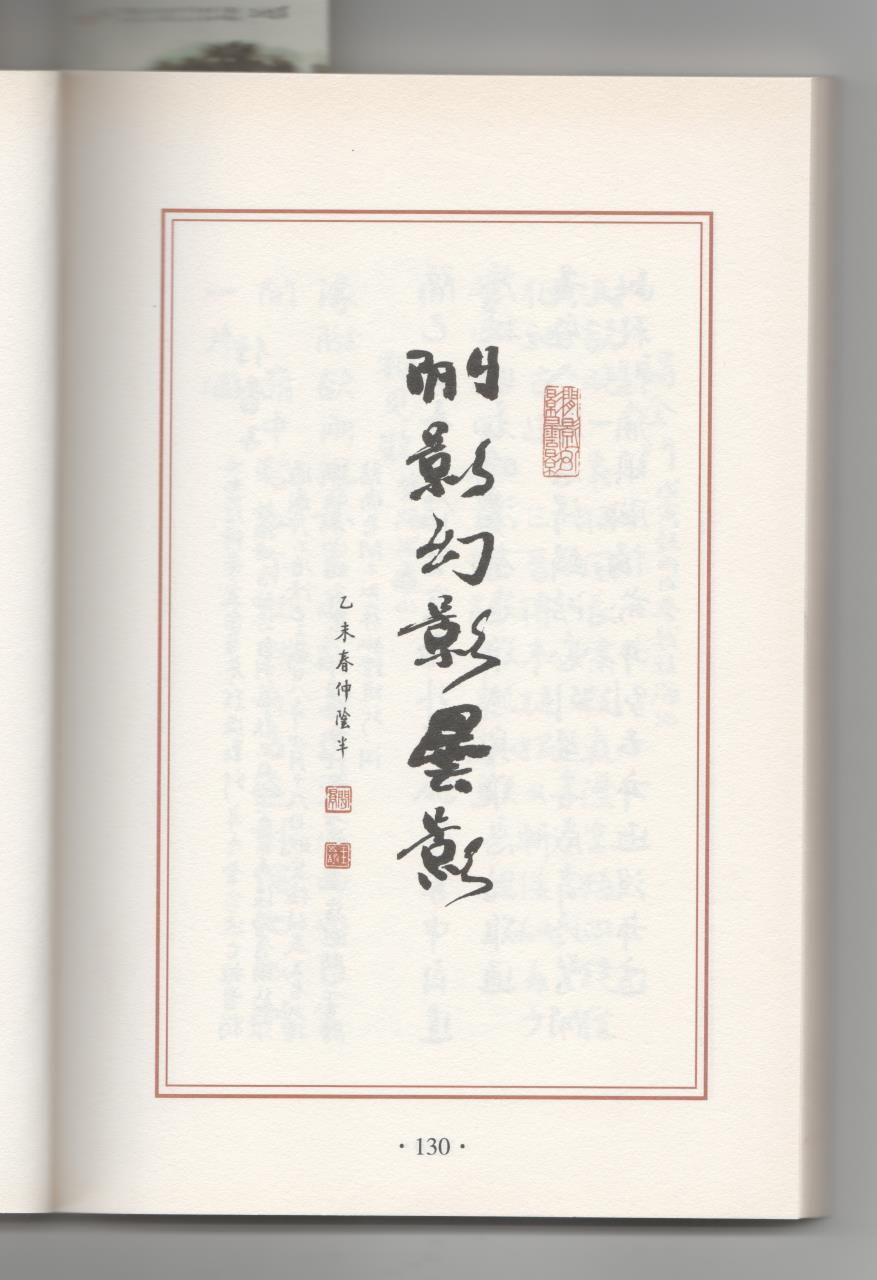 朙影幻影曇影
乙未春仲陰半
· 130 ·